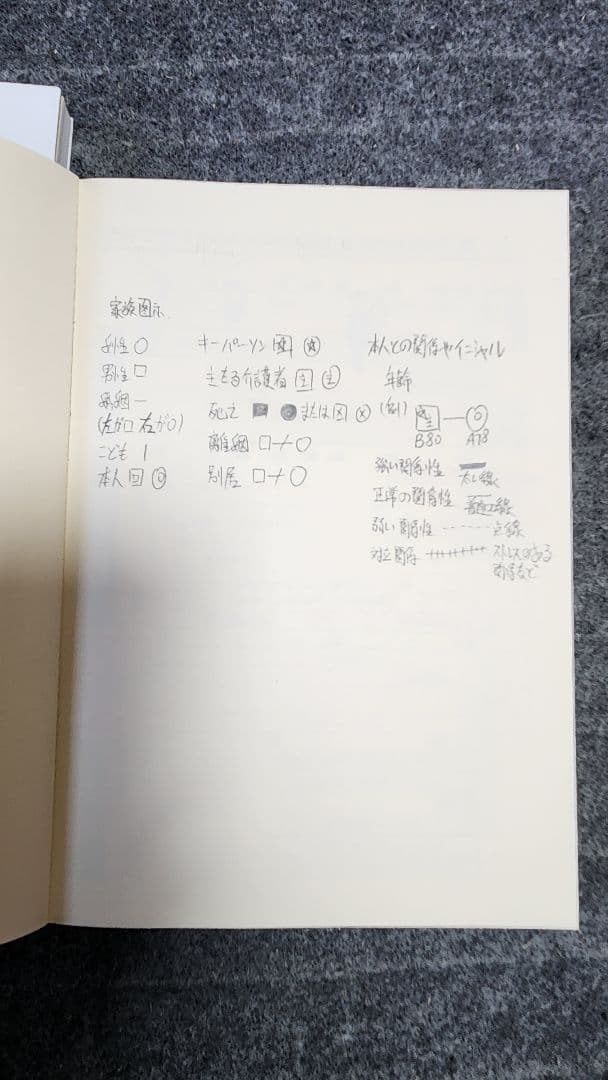 家族図示
女性 ○
男性 □
婚姻 ー
(左が□ 右が○)
こども |
本人 回 ◎
キーパーソン ☆ ☆
主たる介護者 主 主
死亡 ■ ● または ☒ ⊗
離婚 □-/-○
別居 □-/-○
本人との関係やイニシャル
年齢
(例)
☆主 ー ◎
B80 A78
強い関係性 太い線
正常の関係性 普通の線
弱い関係性 ------- 点線
対立関係 ++++++++ ストレスのある
関係など